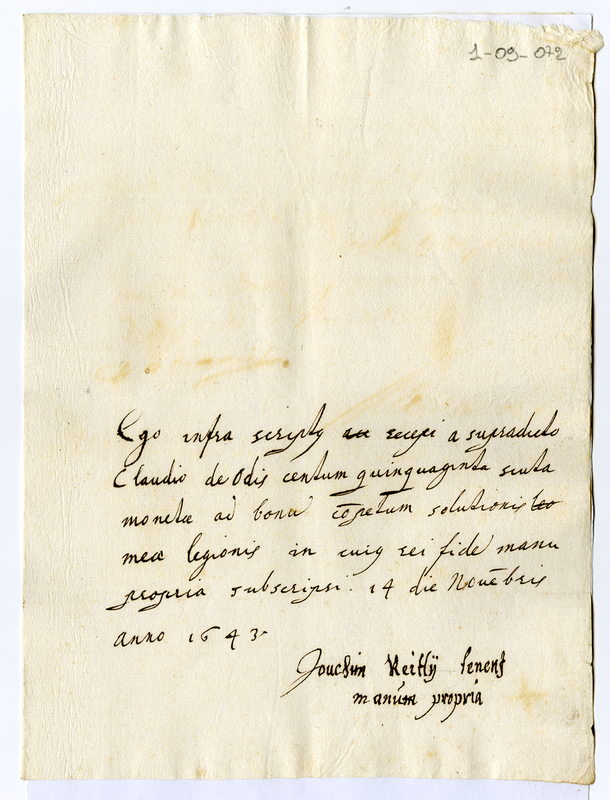 1-09-072
Ego infra scriptꝯ acc recepi a supradicto
Claudio de Odis centum quinquaginta scuta
monetæ ad bonū cōpetum solutionis leo
meæ legionis in cuiꝯ rei fide manu
propria subscripsi. 14 die Novēbris
anno 1643.
manūm propria